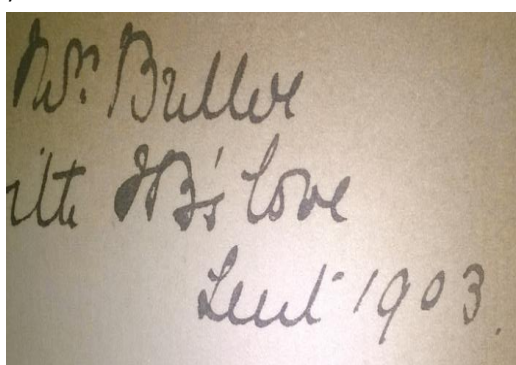 Mr. Buller
ith JB's love
Lent 1903.